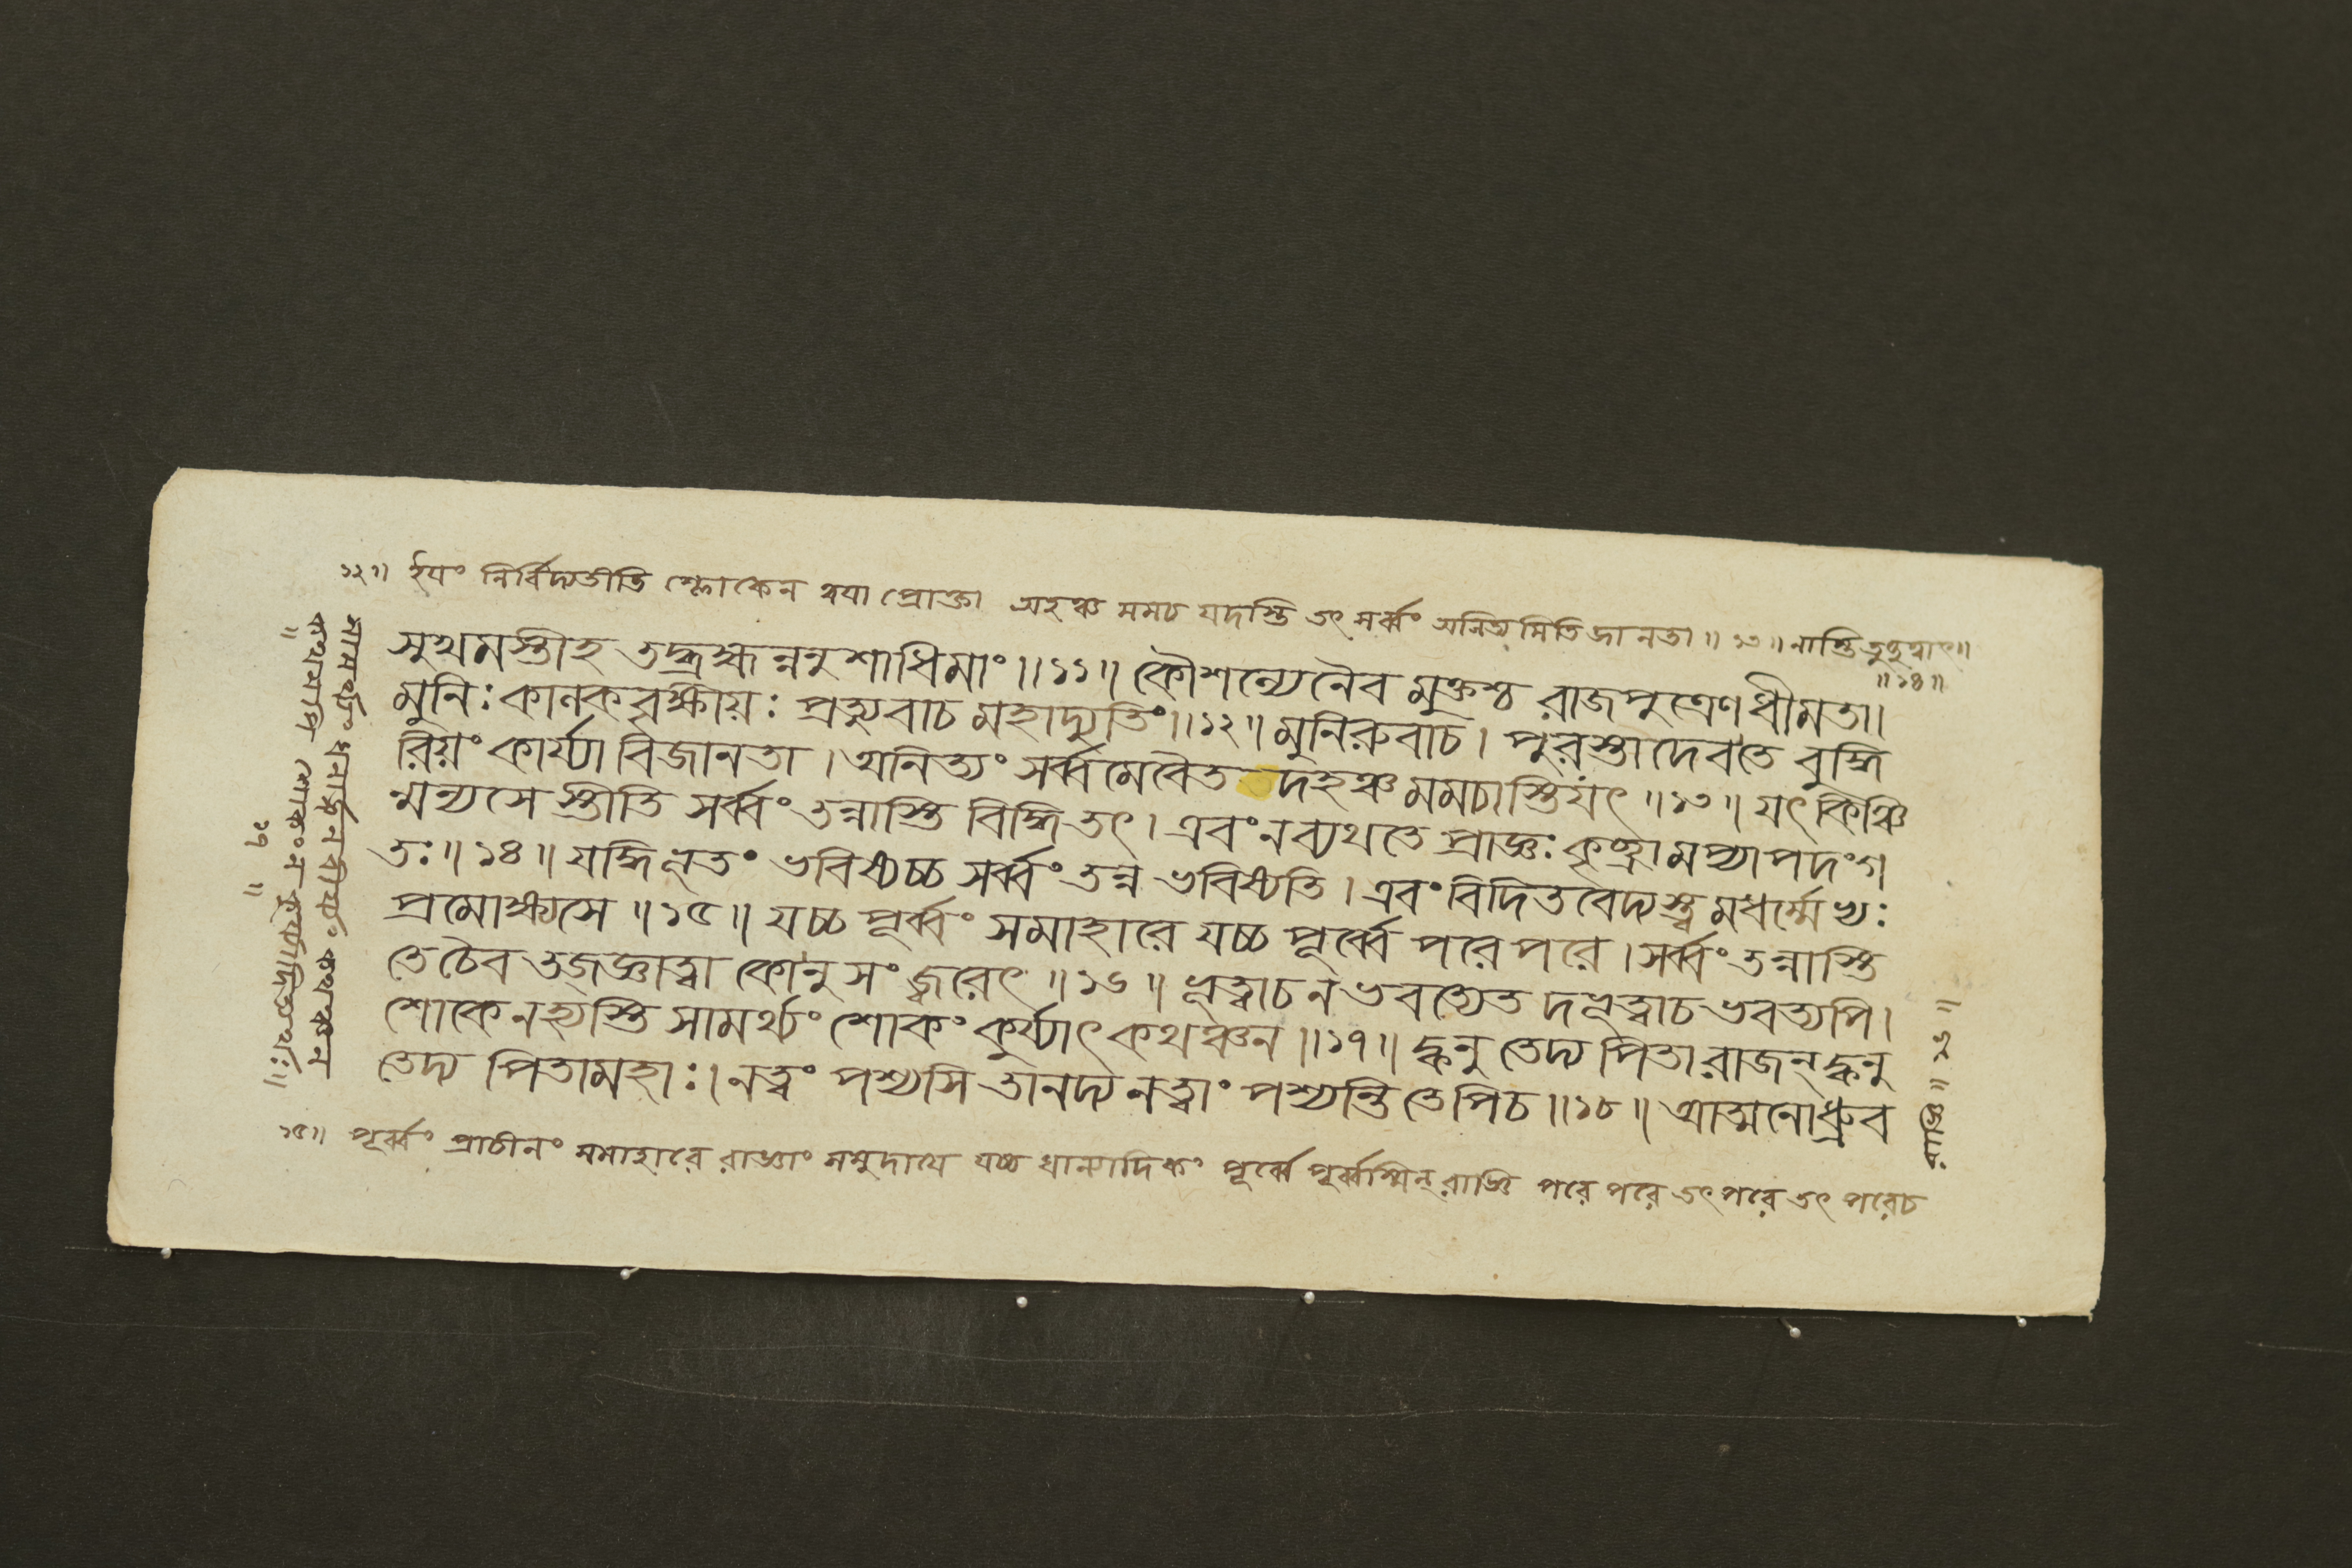 ১২॥ ইয়ং নির্ব্বিদ্যতীতি শ্লোকেন ত্বয়া প্রোক্তা অহঞ্চ মমচ যদস্তি তৎ সর্ব্বং অনিত্যমিতি জানতা॥ ১৩॥ নাস্তি
॥১৪॥
সুখমস্তীহ তদ্ব্রহ্মন্ননুশাধিমাং॥১১॥ কৌশল্যেনৈব মুক্তস্তু রাজপুত্রেণ ধীমতা।
মুনিঃ কালকবৃক্ষীয়ঃ প্রত্যুবাচ মহাদ্যুতিং॥১২॥ মুনিরুবাচ। পুরস্তাদেবতে বুদ্ধি
রিয়ং কার্য্যা বিজানতা। অনিত্যং সর্ব্বমেবৈত তদহঞ্চ মমচাস্তি যৎ॥১৩॥ যৎকিঞ্চি
ন্মন্যসে স্তীতি সর্ব্বং তন্নাস্তি বিদ্ধি তৎ। এবং নব্যথতে প্রাজ্ঞঃ কৃচ্ছ্রামপ্যাপদংগ
তঃ॥১৪॥ যদ্ধি ভূতং ভবিষ্যচ্চ সর্ব্বং তন্ন ভবিষ্যতি। এবং বিদিতবেদ্যস্ত্বমধর্ম্মেভ্যঃ
প্রমোক্ষ্যসে॥১৫॥ যচ্চ পূর্ব্বং সমাহারে যচ্চ পূর্ব্বে পরেপরে। সর্ব্বং তন্নাস্তি
তে চৈব তজ্‌জ্ঞাত্বা কোনু সংজ্বরেৎ॥১৬॥ ভূত্বাচ ন ভবত্যেত দভূত্বাচ ভবত্যপি।
শোকে নহ্যস্তি সামর্থ্যং শোকং কুর্য্যাৎ কথঞ্চন॥১৭॥ ক্বনু তেদ্য পিতা রাজন্ ক্বনু
তেদ্য পিতামহাঃ। নত্বং পশ্যসি তানদ্য নত্বাং পশ্যন্তি তেপিচ॥১৮॥ আত্মনোধ্রুব
১৫॥ পূর্ব্বং প্রাচীনং সমাহারে রাজ্ঞাং সমুদায়ে যচ্চ ধান্যাদিকং পূর্ব্বে পূর্ব্বস্মিন্ রাজ্ঞি পরে পরে তৎপরে তৎ পরেচ
সামর্থ্যং
কথমপি শোকং ন কুর্য্যাদিত্যর্থঃ॥
১৭
॥